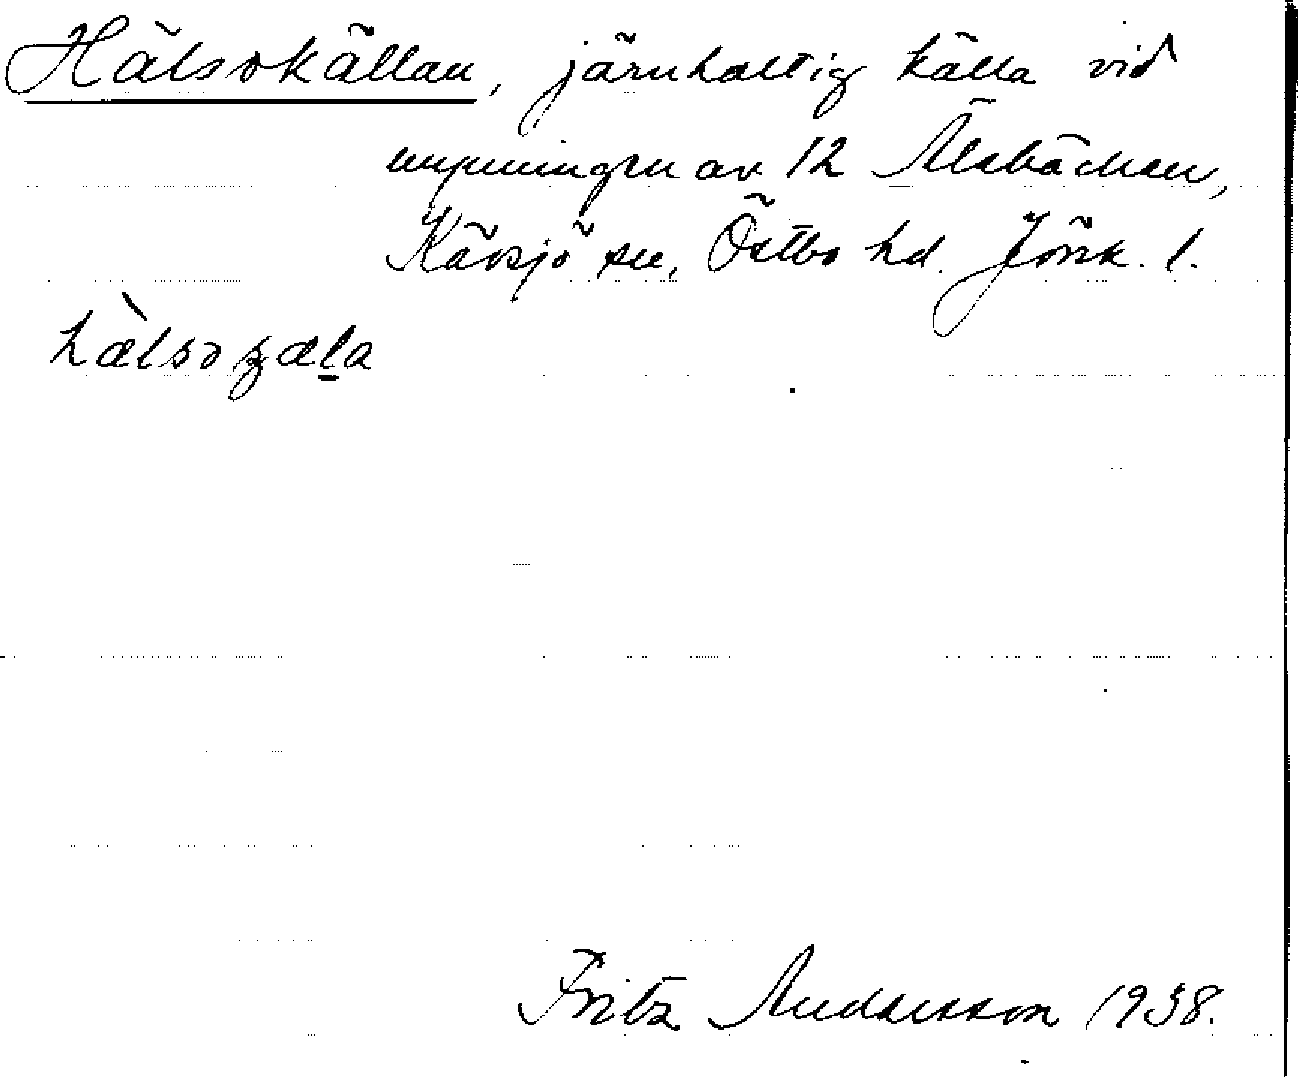 Hälsokällan, järnhaltig källa vid
mynningen av 12 Älabäcken,
Kävsjö sn, Östbo hd. Jönk. l.
hæ̀lsoʒæla
Fritz Andersson 1938.